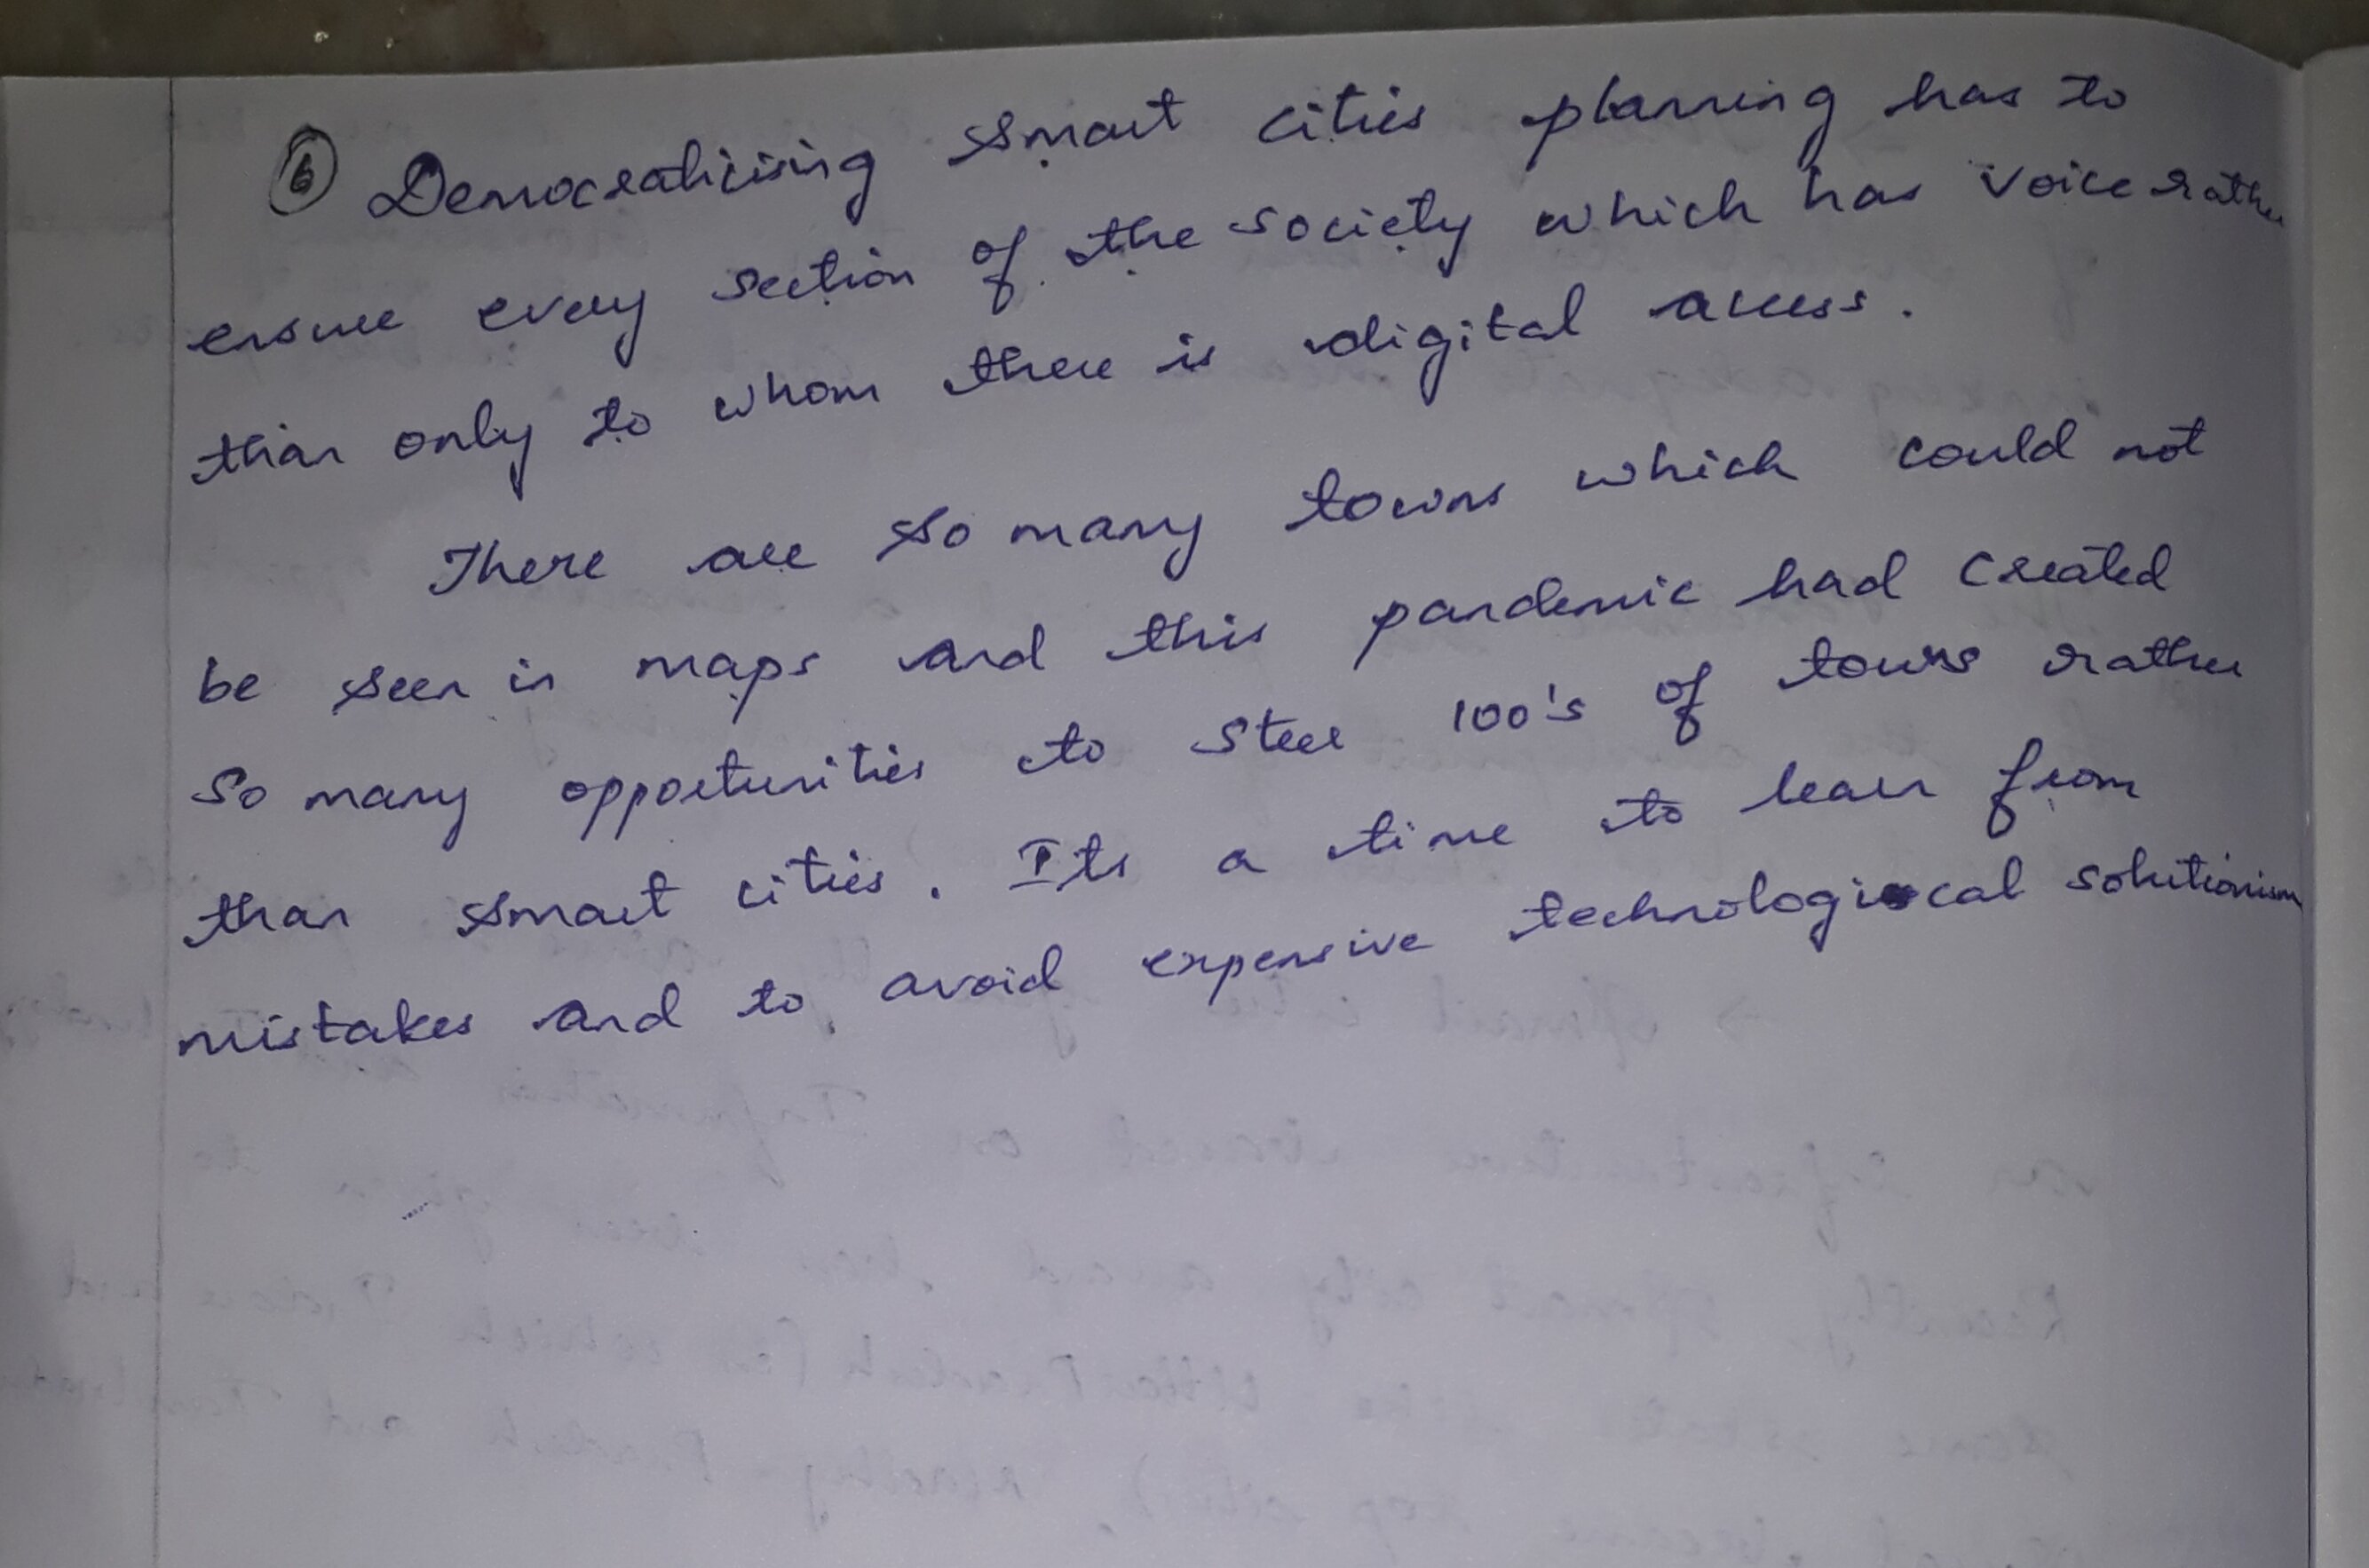 ⑥ Democraticising smart cities planning has to
ensure every section of the society which has voice rather
than only to whom there is digital access.
There are so many towns which could not
be seen in maps and this pandemic had created
so many opportunities to steer 100's of towns rather
than smart cities. Its a time to learn from
mistakes and to avoid expensive technological solutionism